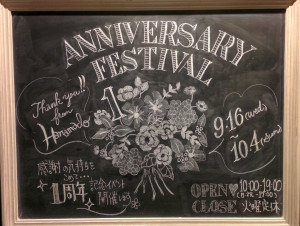 ANNIVERSARY
FESTIVAL
Thank you!!
from
1
9.16 (wed)
10.4 (sun)
感謝の気持ちを
こめて...
1周年 記念イベント
開催!
OPEN♥10:00-19:00
CLOSE 火曜定休